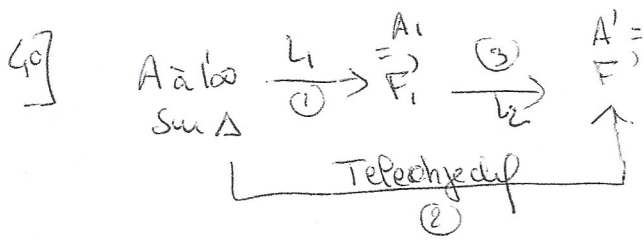 4°]
A à l'∞ sur Δ
L₁
①
A₁ = F'₁
③
L₂
A' = F'
Téléobjectif
②